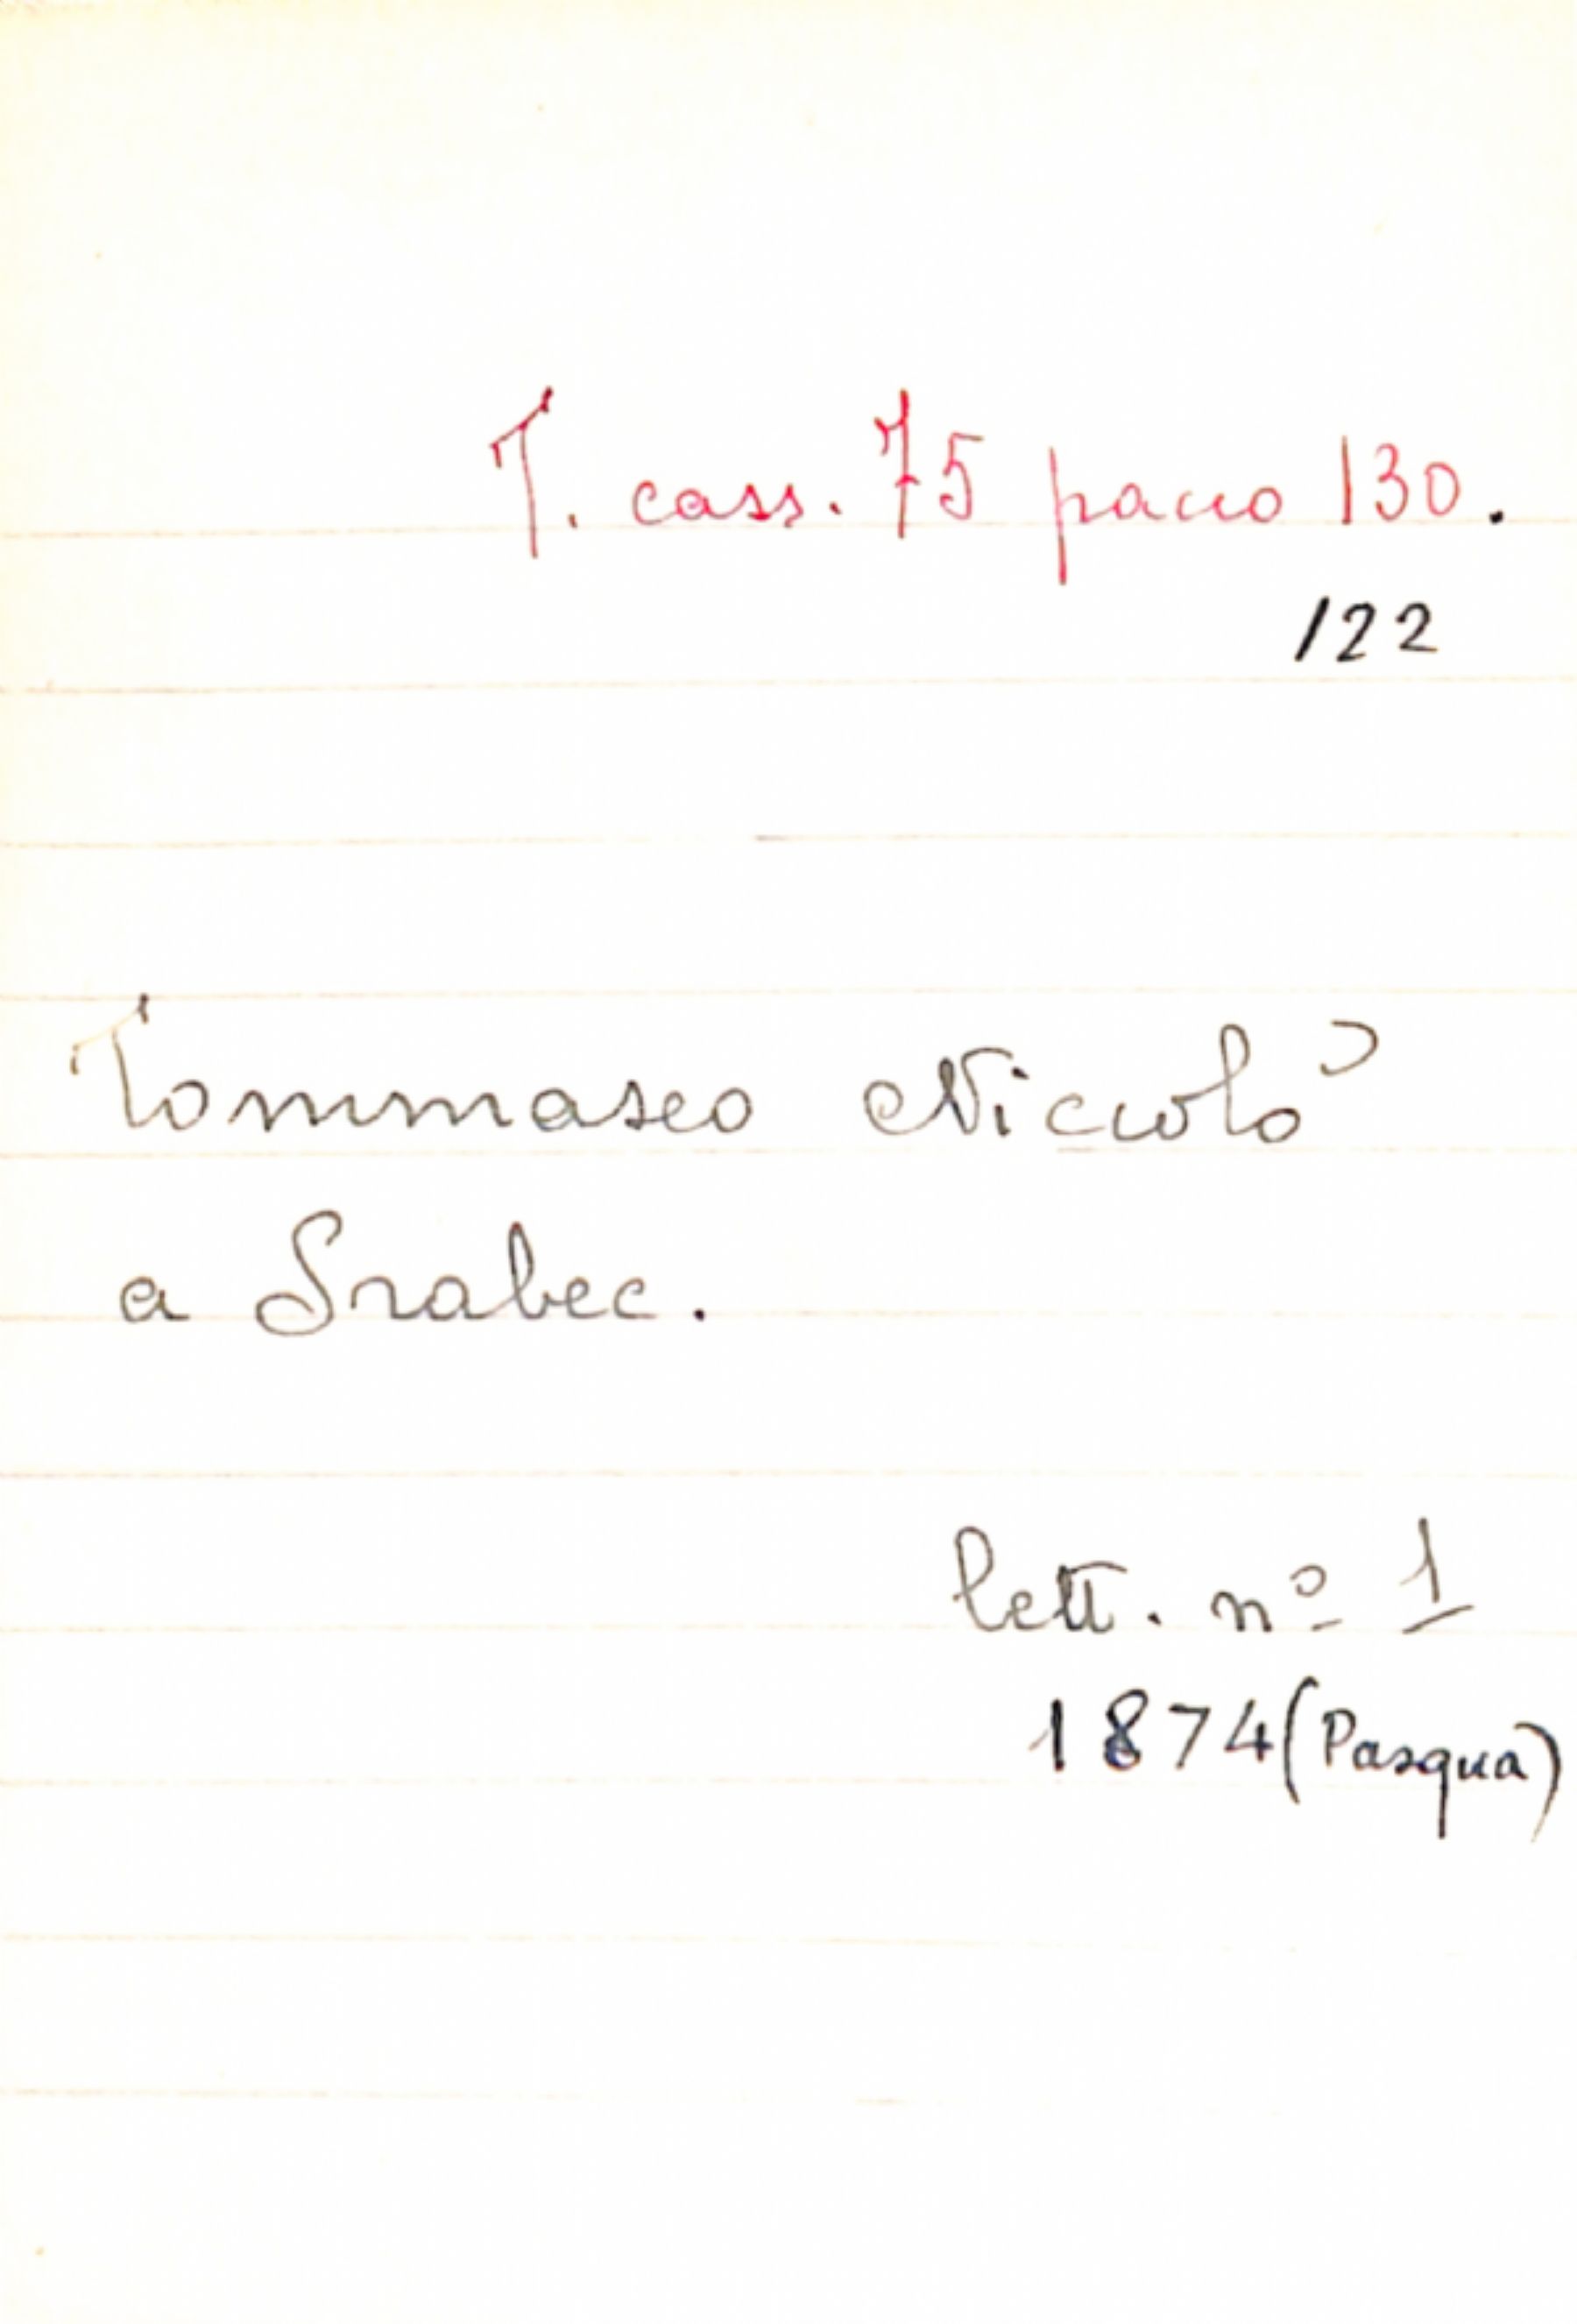 T. cass. 75 pacco 130.
122
Tommaseo Niccolò
a Srabec.
lett. nº 1
1874 (Pasqua)